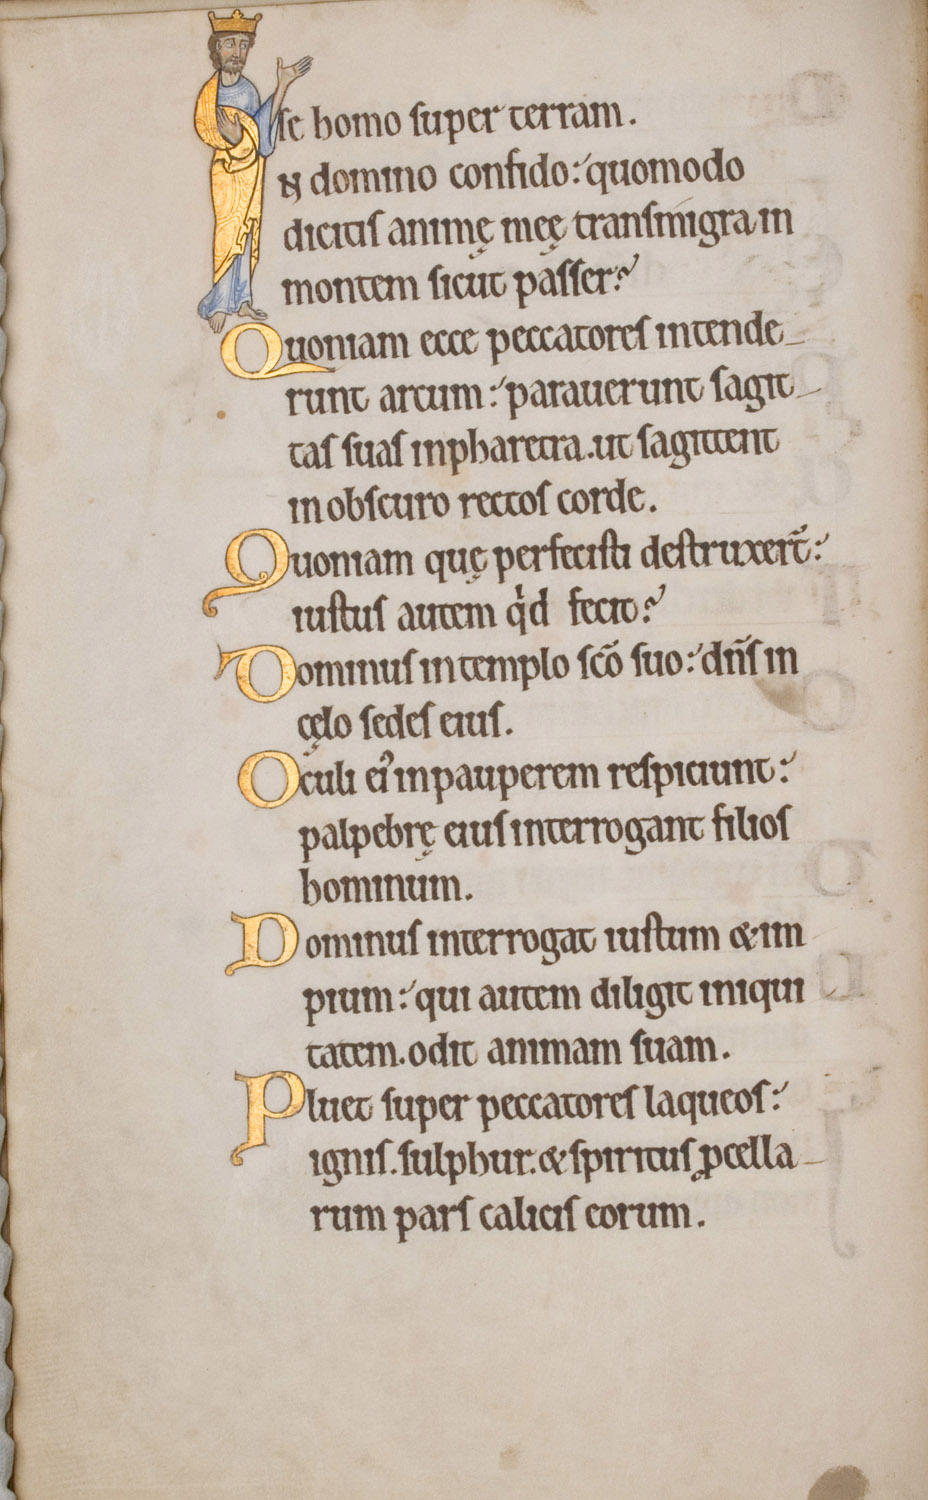 se homo super terram.
N domino confido: quomodo
dicitis animę meę transmigra in
montem sicut passer?
Quoniam ecce peccatores intende-
runt arcum: parauerunt sagit-
tas suas in pharetra. ut sagittent
in obscuro rectos corde.
Quoniam quę perfecisti destruxer̄t:
iustus autem qͥd fecit?
Dominus in templo scō suo: dn̄s in
cęlo sedes eius.
Oculi ei᾽ in pauperem respiciunt:
palpebrę eius interrogant filios
hominum.
Dominus interrogat iustum & im
pium: qui autem diligit iniqui
tatem. odit animam suam.
Pluet super peccatores laqueos:
ignis. sulphur. & spiritus ꝓcella-
rum pars calicis eorum.